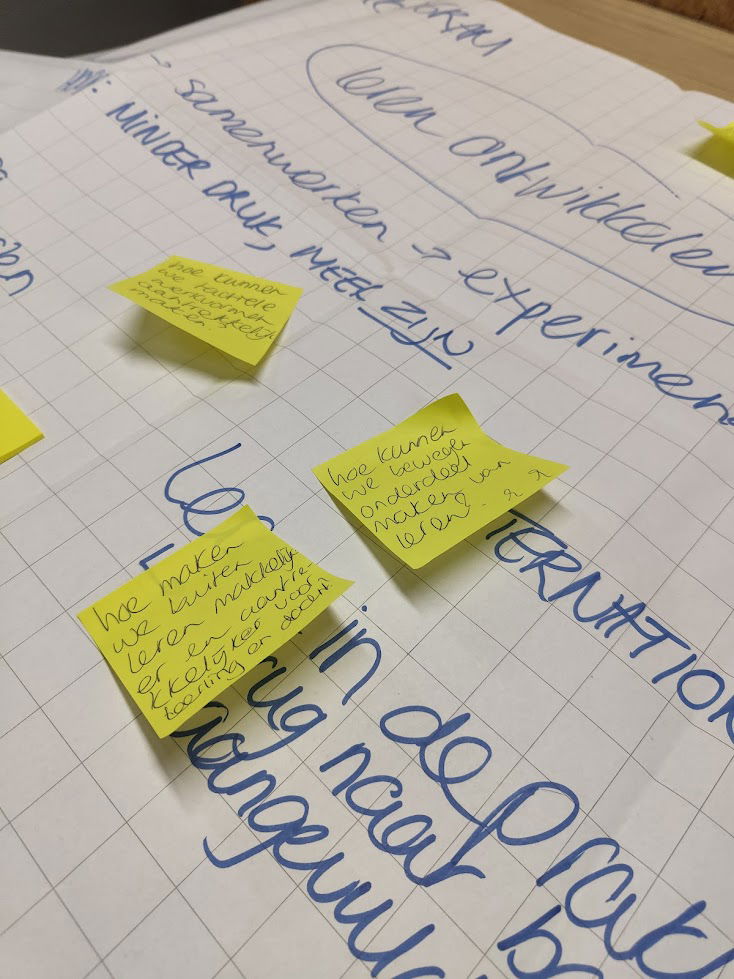 leren ontwikkelen
→ samenwerken → experimen
MINDER DRUK, MEER ZIJN
hoe kunnen
we
maken.
hoe kunnen
we bewegen
onderdeel
maken van
leren.
hoe maken
we buiten
leren makkelijk
er en aantre
kkelijker voor
leerling en docent.
TERNATION
Le
in de prakt
rug naar ba
aangevul